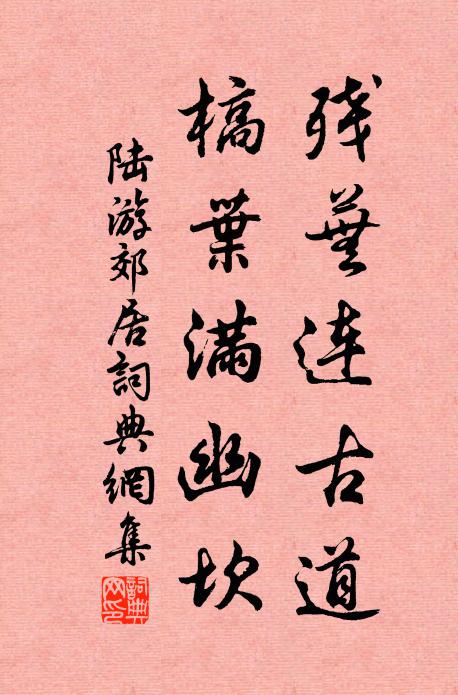 残蕪連古道
槁葉滿幽坎
陸游郊居詞典網集
詞典网印